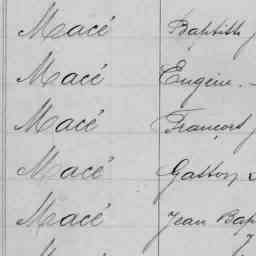 Macé Baptiste
Macé Eugène
Macé François
Macé Gaston
Macé Jean Bap